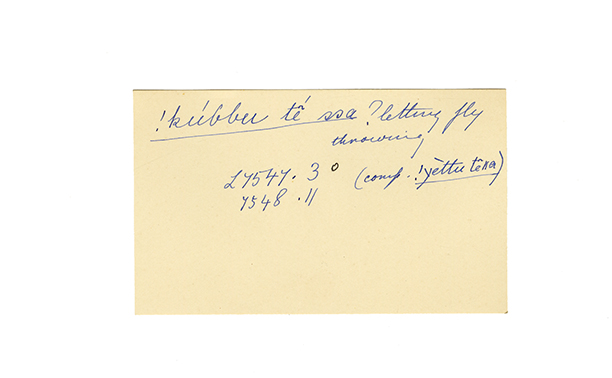 !kúbber tẽ́ ssa ? letting fly
throwing
L 7547. 3° (comp. !yèttu tẽssa)
7548. 11